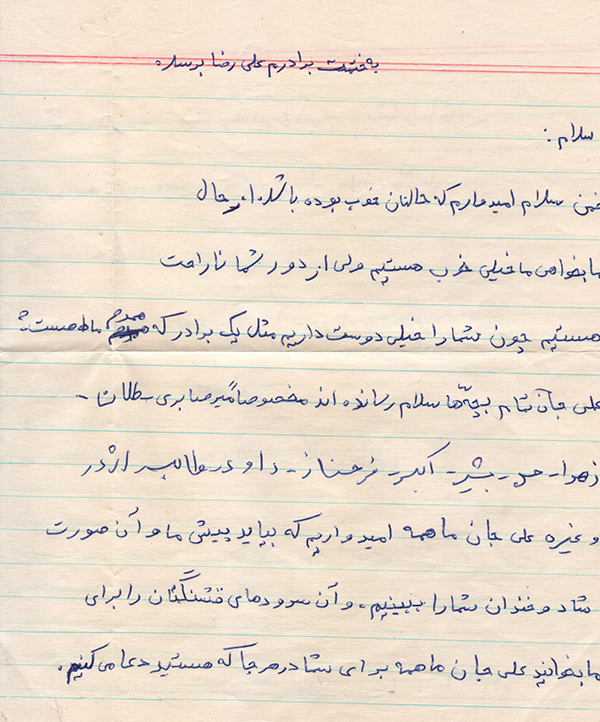 به خدمت برادرم علی رضا برسد
سلام :
ضمن سلام امیدوارم که حالتان خوب بوده باشد. از حال
ما بخواهی ما خیلی خوب هستیم ولی از دور شما ناراحت
هستیم چون شما را خیلی دوست داریم مثل یک برادر که همدم ما هست
علی جان تمام بچّه‌ها سلام رسانده اند مخصوصا میرصابری - طلان -
زهرا - - بشیر - اکبر - فرحناز - داود و طالب اژدر
و غیره علی جان ما همه امیدواریم که بیاید پیش ما و آن صورت
شاد و خندان شما را ببینیم. و آن سرودهای قشنگتان را برای
ما بخوانید علی جان ما همه برای شما در هر جا که هستید دعا می کنیم.